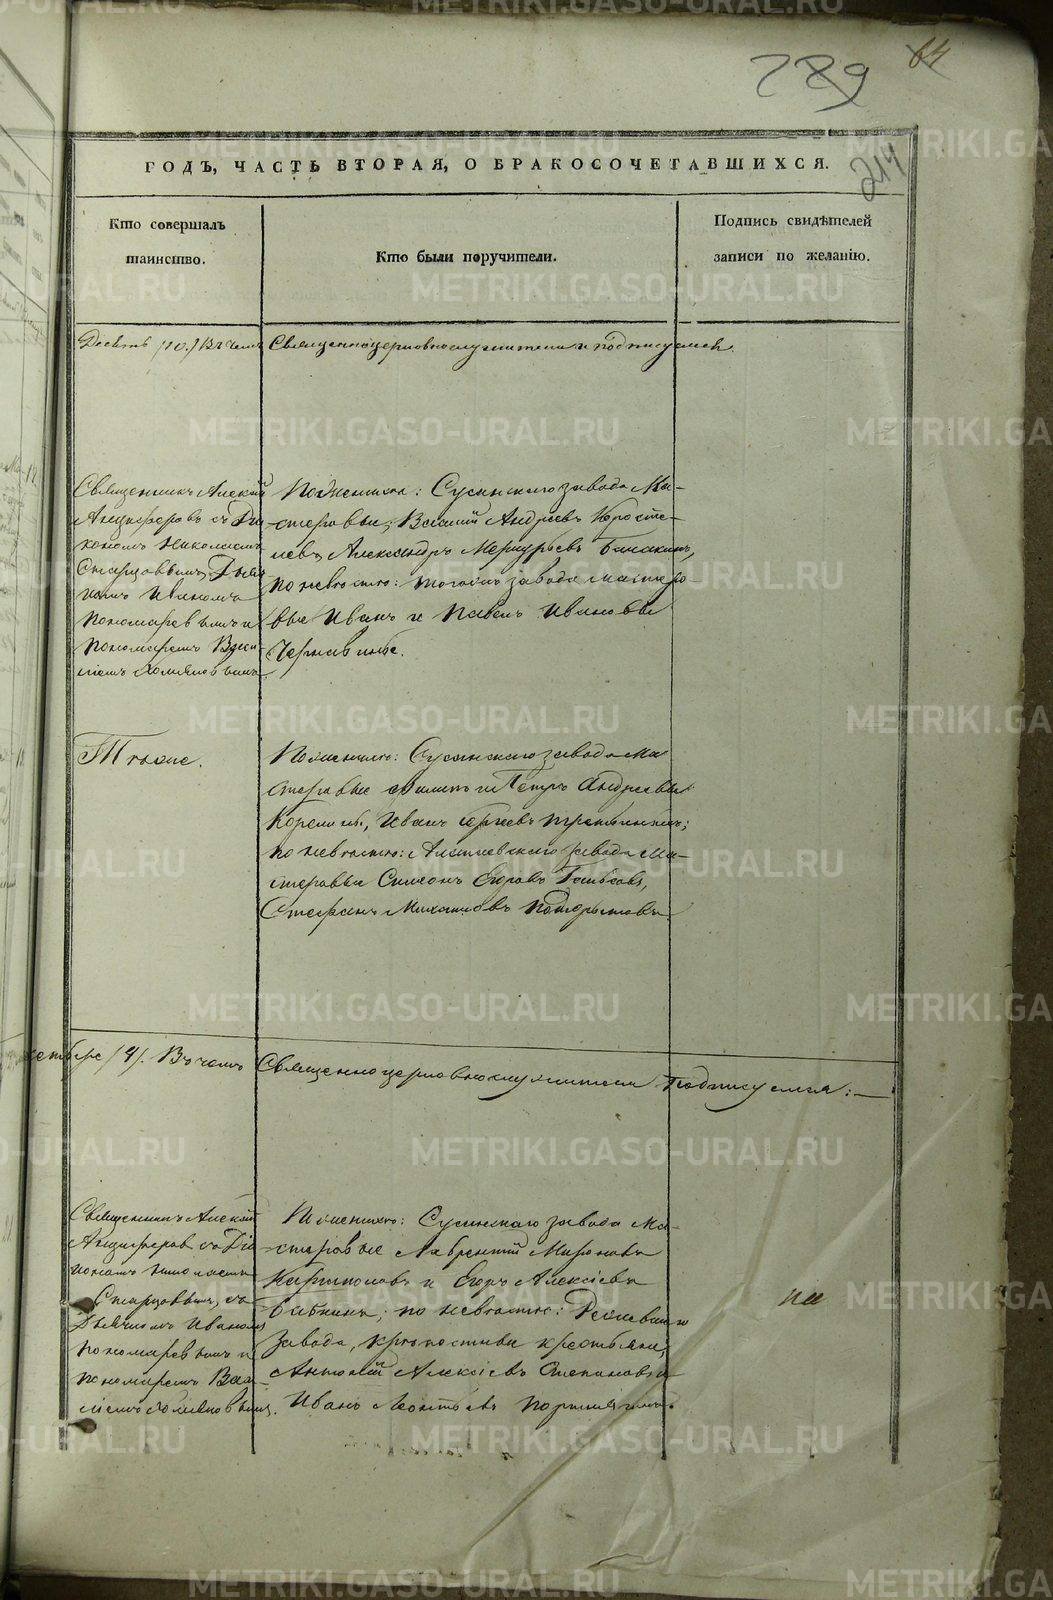 64
289
214
ГОДЪ, ЧАСТЬ ВТОРАЯ, О БРАКОСОЧЕТАВШИХСЯ.
Кто совершалъ
таинство.
Кто были поручители.
Подпись свидѣтелей
записи по желанію.
Десять /10./ Въ чемъ Священноцерковнослужители и подписуемся.
Священникъ Алексій
Анциферовъ съ Діа
кономъ Николаемъ
Старцовымъ, Дьяч
комъ Иваномъ
Пономаревымъ и
пономаремъ Васи
ліемъ Хомяковымъ
По женихѣ: Сусанскаго завода Ма-
стеровые, Василій Андреевъ Коросте-
левъ, Александръ Меркурьевъ
по невѣстѣ: того же завода мастеро
вые Иванъ и Павелъ Ивановы
Чернавины.
Тѣже.
По женихѣ: Сусанскаго завода Ма
стеровые Филипъ и Петръ Андреевы
Иванъ Сергѣевъ
по невѣстѣ: Алапаевскаго завода Ма-
стеровые Симеонъ Егоровъ
Стефанъ Михаиловъ
/4/. Въ чемъ Священноцерковнослужители подписуемся:—
Священникъ Алексій
Анциферовъ съ Діа
кономъ Николаемъ
Старцовымъ, съ
Дьячкомъ Иваномъ
Пономаревымъ и
пономаремъ Васи
ліемъ Хомяковымъ.
По женихѣ: Сусанскаго завода Ма-
стеровые Лаврентій Мироновъ
и Егоръ Алексіевъ
Бабкинъ; по невѣстѣ: Режевскаго
завода, крѣпостные крестьяне,
Антоній Алексіевъ Степановъ и
Иванъ Леонтьевъ
METRIKI.GASO-URAL.RU